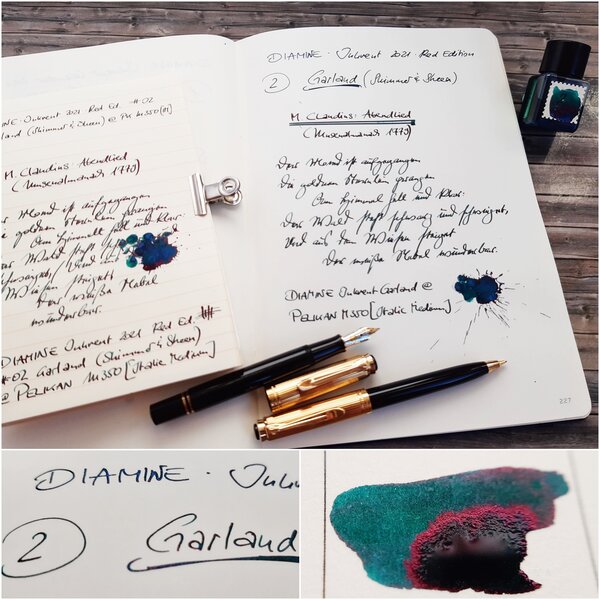 MINE: Inkvent 2021 Red Ed. #02
land (Shimmer & Sheen) @ M550
M. Claudius: Abendlied
(Musenalmanach 1779)
er Mond ist aufgegangen
goldnen Sternlein prangen
Am Himmel hell und klar:
er Wald steht
schweiget, Und aus
Wiesen steiget
Der weiße Nebel
wunderbar.
DIAMINE Inkvent 2021 Red Ed.
#02 Garland (Shimmer & Sheen)
@ PELIKAN M550 [Italic Medium]
DIAMINE · Inkvent 2021 · Red Edition
2 Garland (Shimmer & Sheen)
M. Claudius: Abendlied
(Musenalmanach 1779)
Der Mond ist aufgegangen
Die goldnen Sternlein prangen
Am Himmel hell und klar:
Der Wald steht schwarz und schweiget,
Und aus den Wiesen steiget
Der weiße Nebel wunderbar.
DIAMINE Inkvent Garland @
PELIKAN M550 [Italic Medium]
227
DIAMINE · Inkv
2 Garland